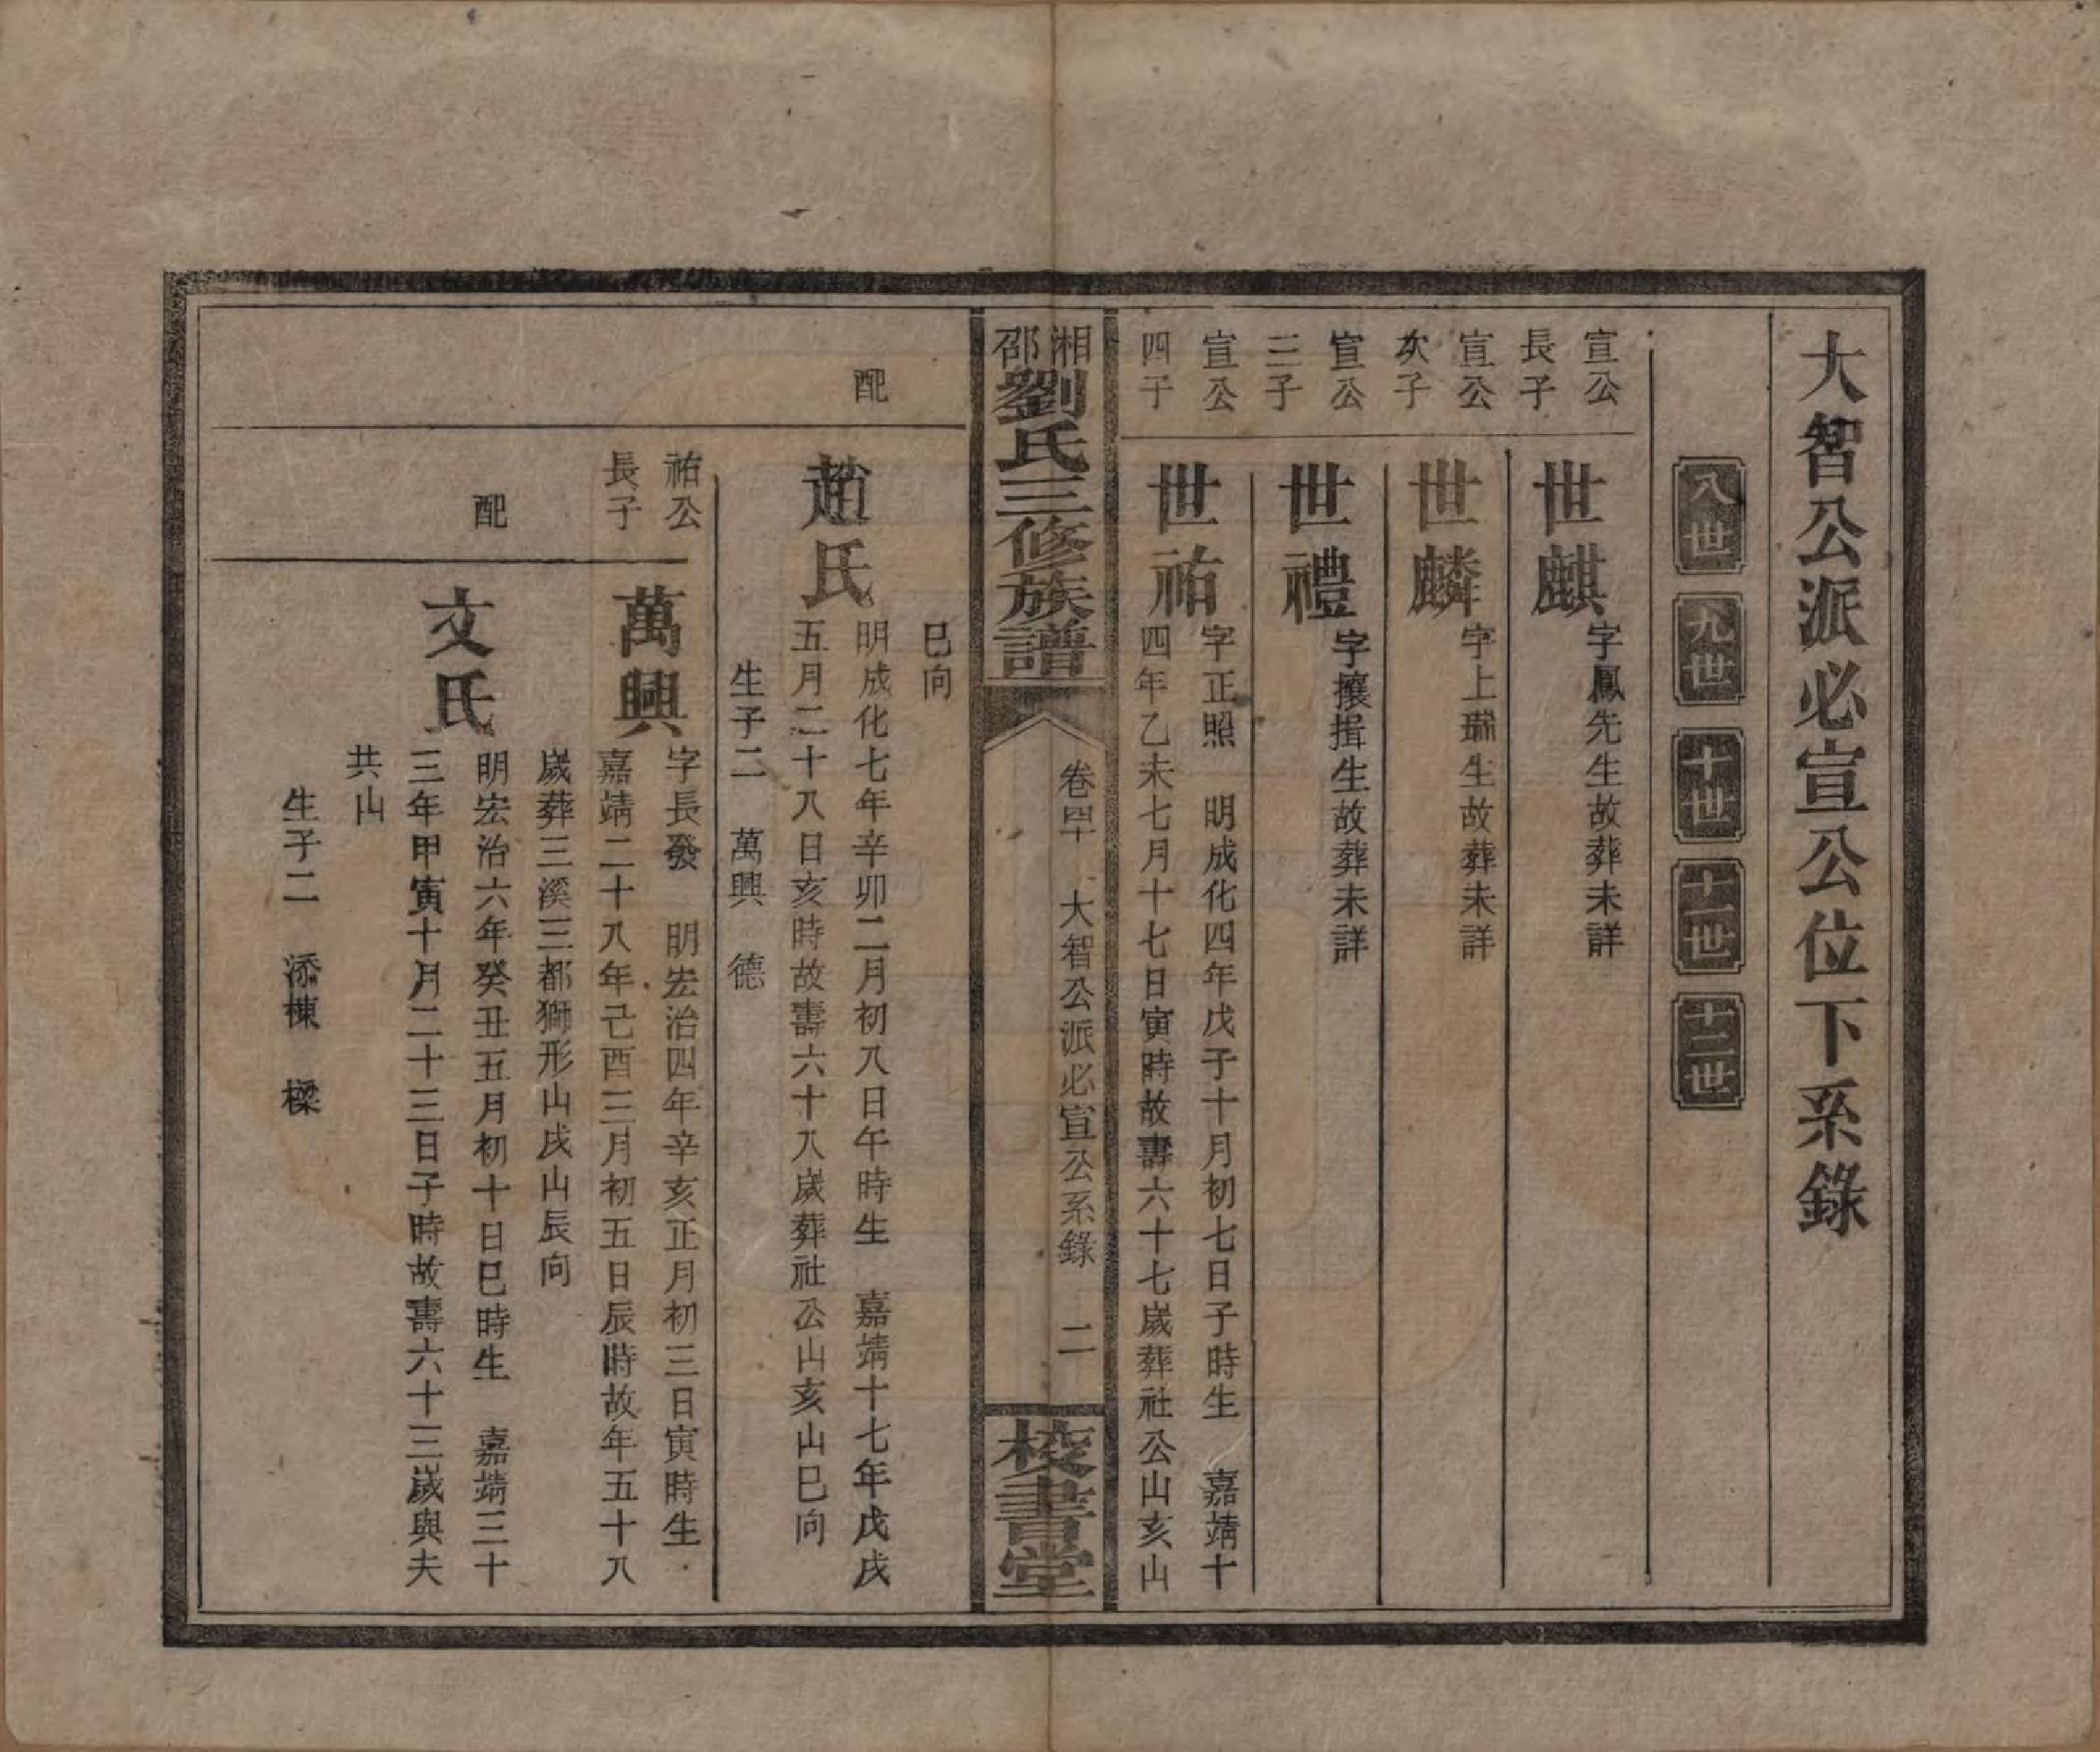 大智公派必宣公位下系錄
八世
九世
十世
十一世
十二世
宣公
長子
世麒
字鳳先生故葬未詳
宣公
次子
世麟
字上瑞生故葬未詳
宣公
三子
世禮
字攘揖生故葬未詳
宣公
四子
世祐
字正照 明成化四年戊子十月初七日子時生 嘉靖十
四年乙未七月十七日寅時故壽六十七歲葬社公山亥山
湘邵劉氏三修族譜
卷四十 大智公派必宣公系錄 二
校書堂
巳向
配
趙氏
明成化七年辛卯二月初八日午時生 嘉靖十七年戊戌
五月二十八日亥時故壽六十八歲葬社公山亥山巳向
生子二 萬興 德
祐公
長子
萬興
字長發 明宏治四年辛亥正月初三日寅時生
嘉靖二十八年己酉三月初五日辰時故年五十八
歲葬三溪三都獅形山戌山辰向
配
文氏
明宏治六年癸丑五月初十日巳時生 嘉靖三十
三年甲寅十月二十三日子時故壽六十三歲與夫
共山
生子二 添棟 樑